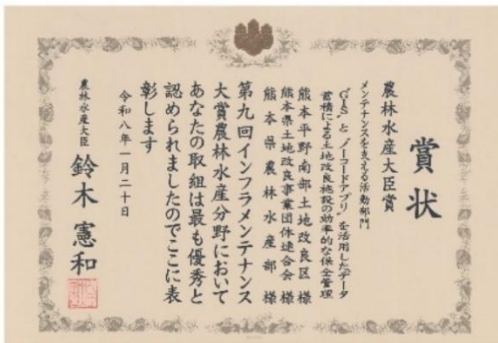 賞状
農林水産大臣賞
メンテナンスを支える活動部門
「GIS」と「ノーコードアプリ」を活用したデータ
蓄積による土地改良施設の効率的な保全管理
熊本平野南部土地改良区 様
熊本県土地改良事業団体連合会 様
熊本県農林水産部 様
第九回インフラメンテナンス
大賞農林水産分野において
あなたの取組は最も優秀と
認められましたのでここに表
彰します
令和八年一月二十日
農林水産大臣 鈴木憲和